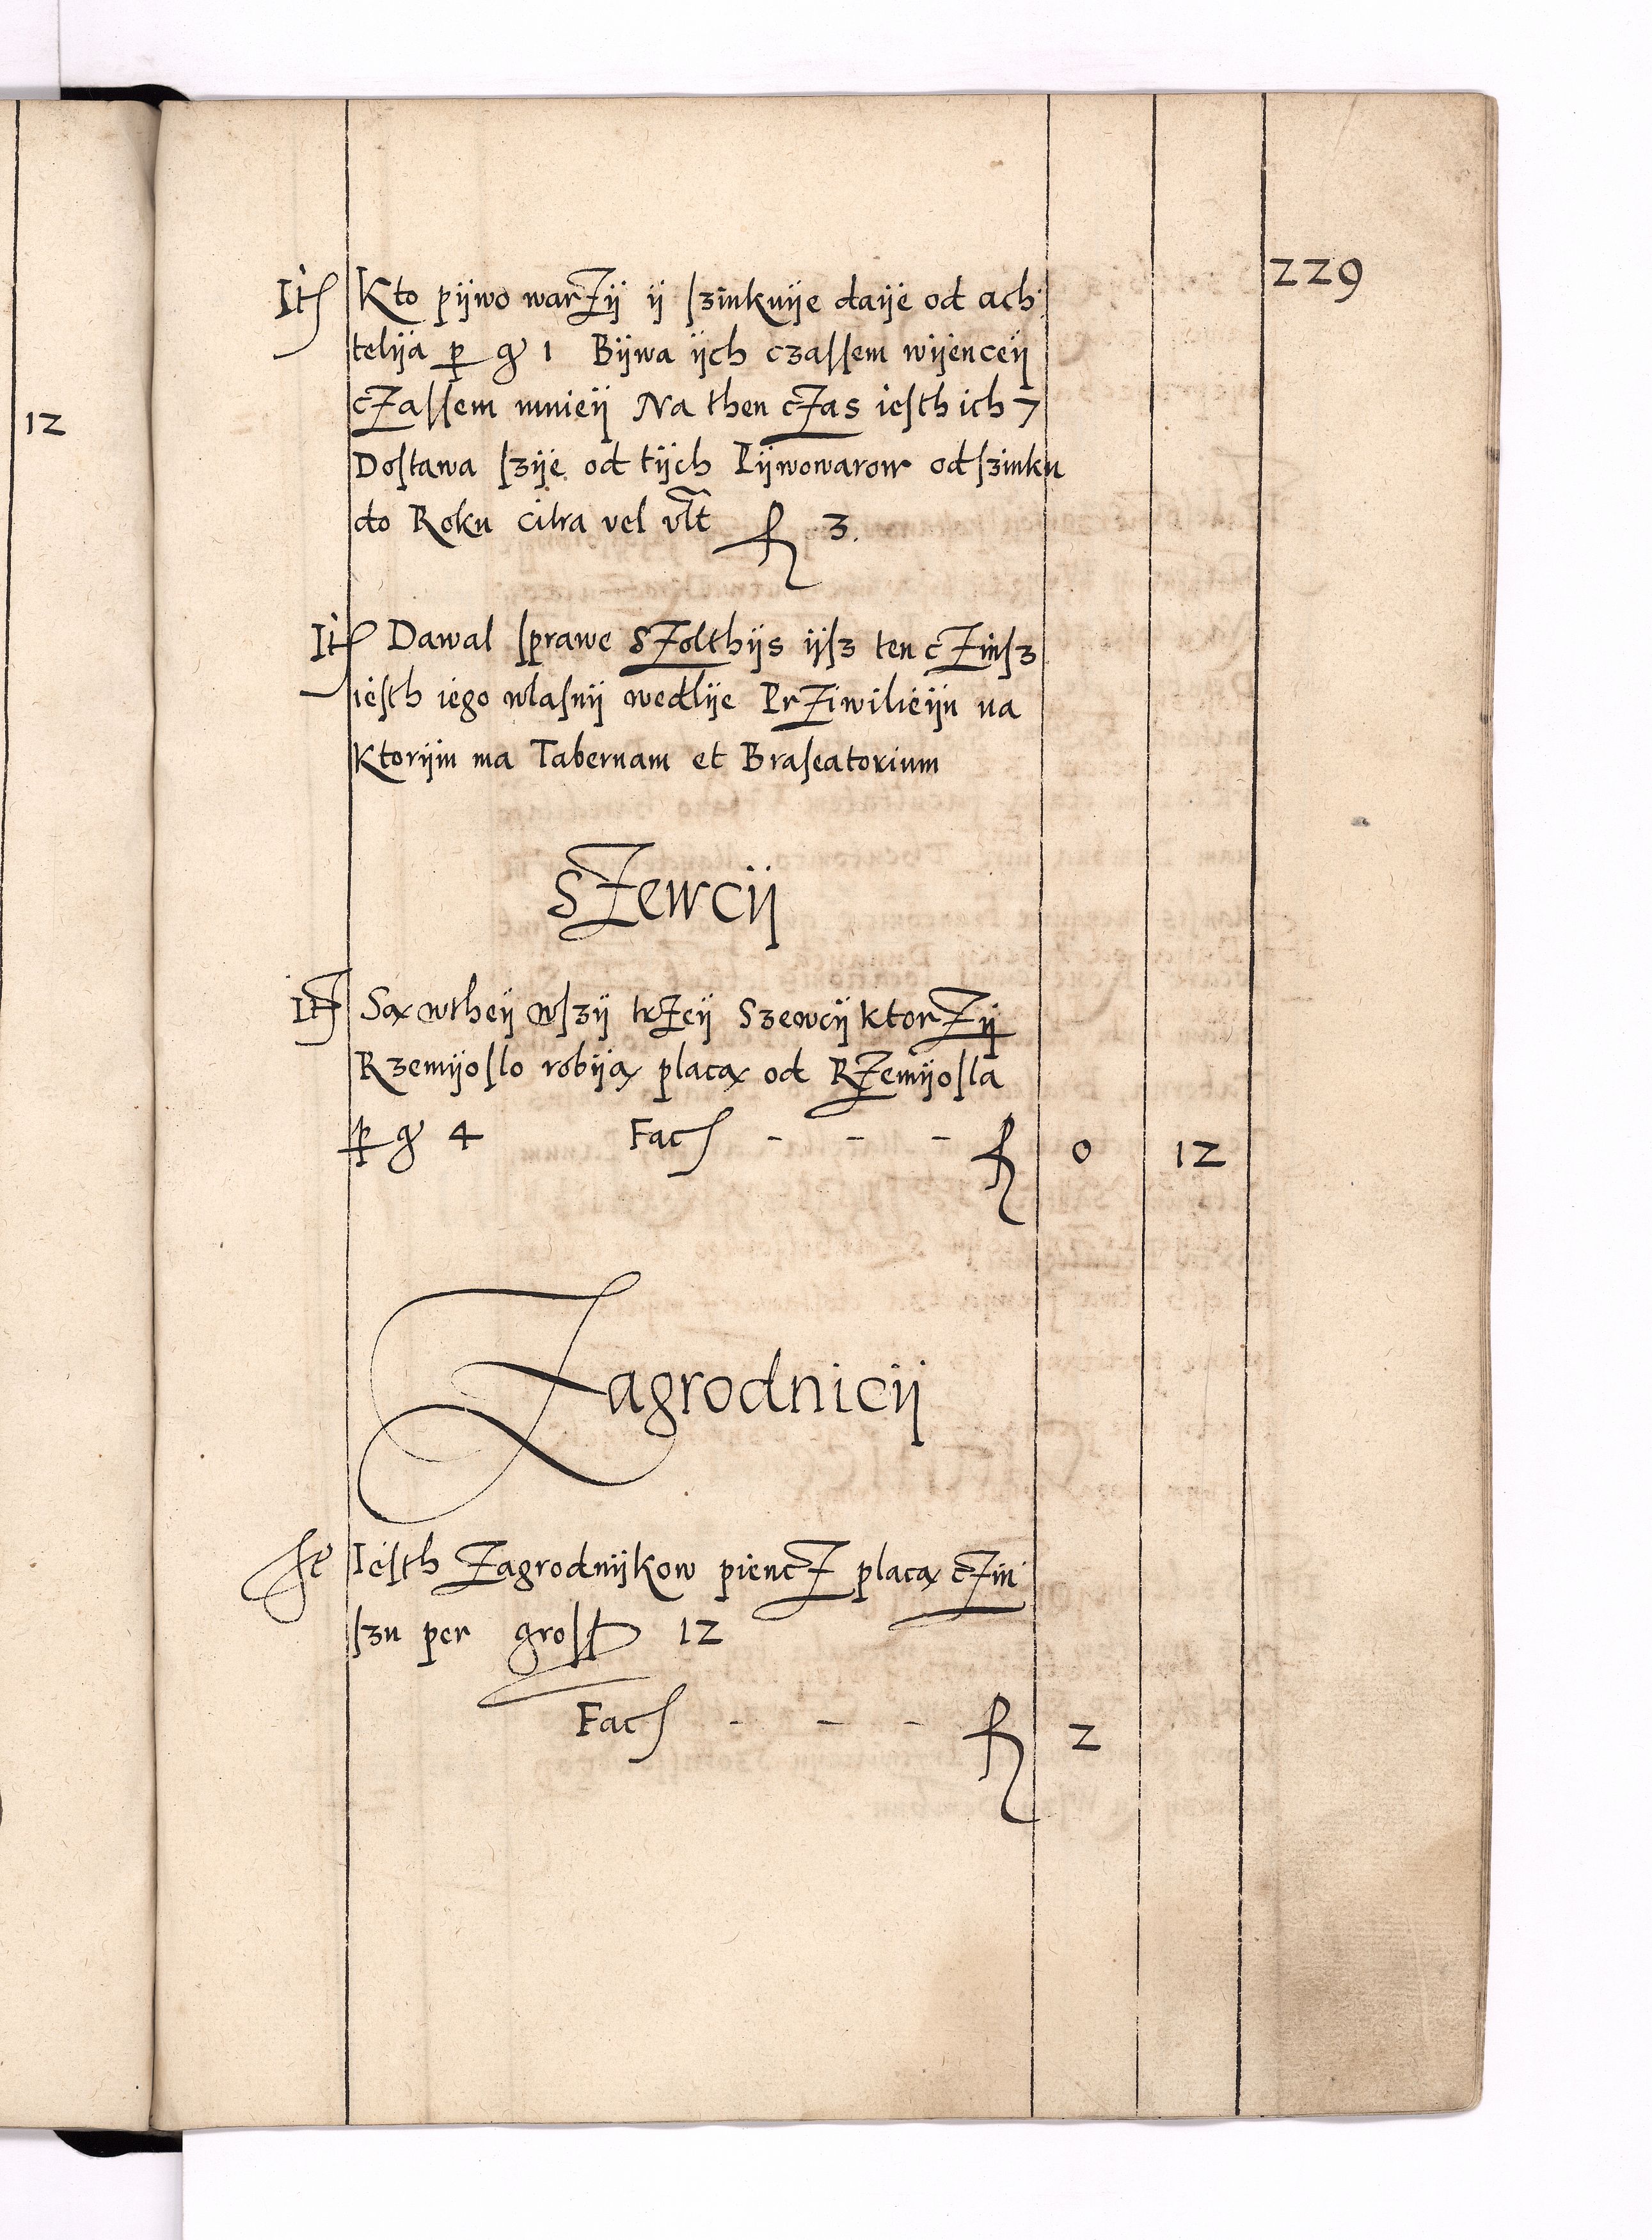 229
12
Itẽ Kto pijwo warzij ij szinkuije daije od ach
telija p gr 1 Bijwa ijch czassem wijenceij
czassem mnieij Na then czas iesth ich 7
Dostawa szije od tijch Pijwowarow od szinku
do Roku citra vel vlt fl 3.
Itẽ Dawal sprawe Szolthijs ijsz ten czinsz
iesth iego wlasnij wedlije Prziwilieiju na
Ktorijm ma Tabernam et Braseatorium
Szewcij
Itẽ Są wtheij wszij trzeij Szewcij ktorzij
Rzemijoslo robiją placą od Rzemijosla
p gr 4 Fac - - - fl 0 12
Zagrodnicij
Iesth Zagrodnijkow piencz placą czin
szu per gross 12
Fac - - - fl 2